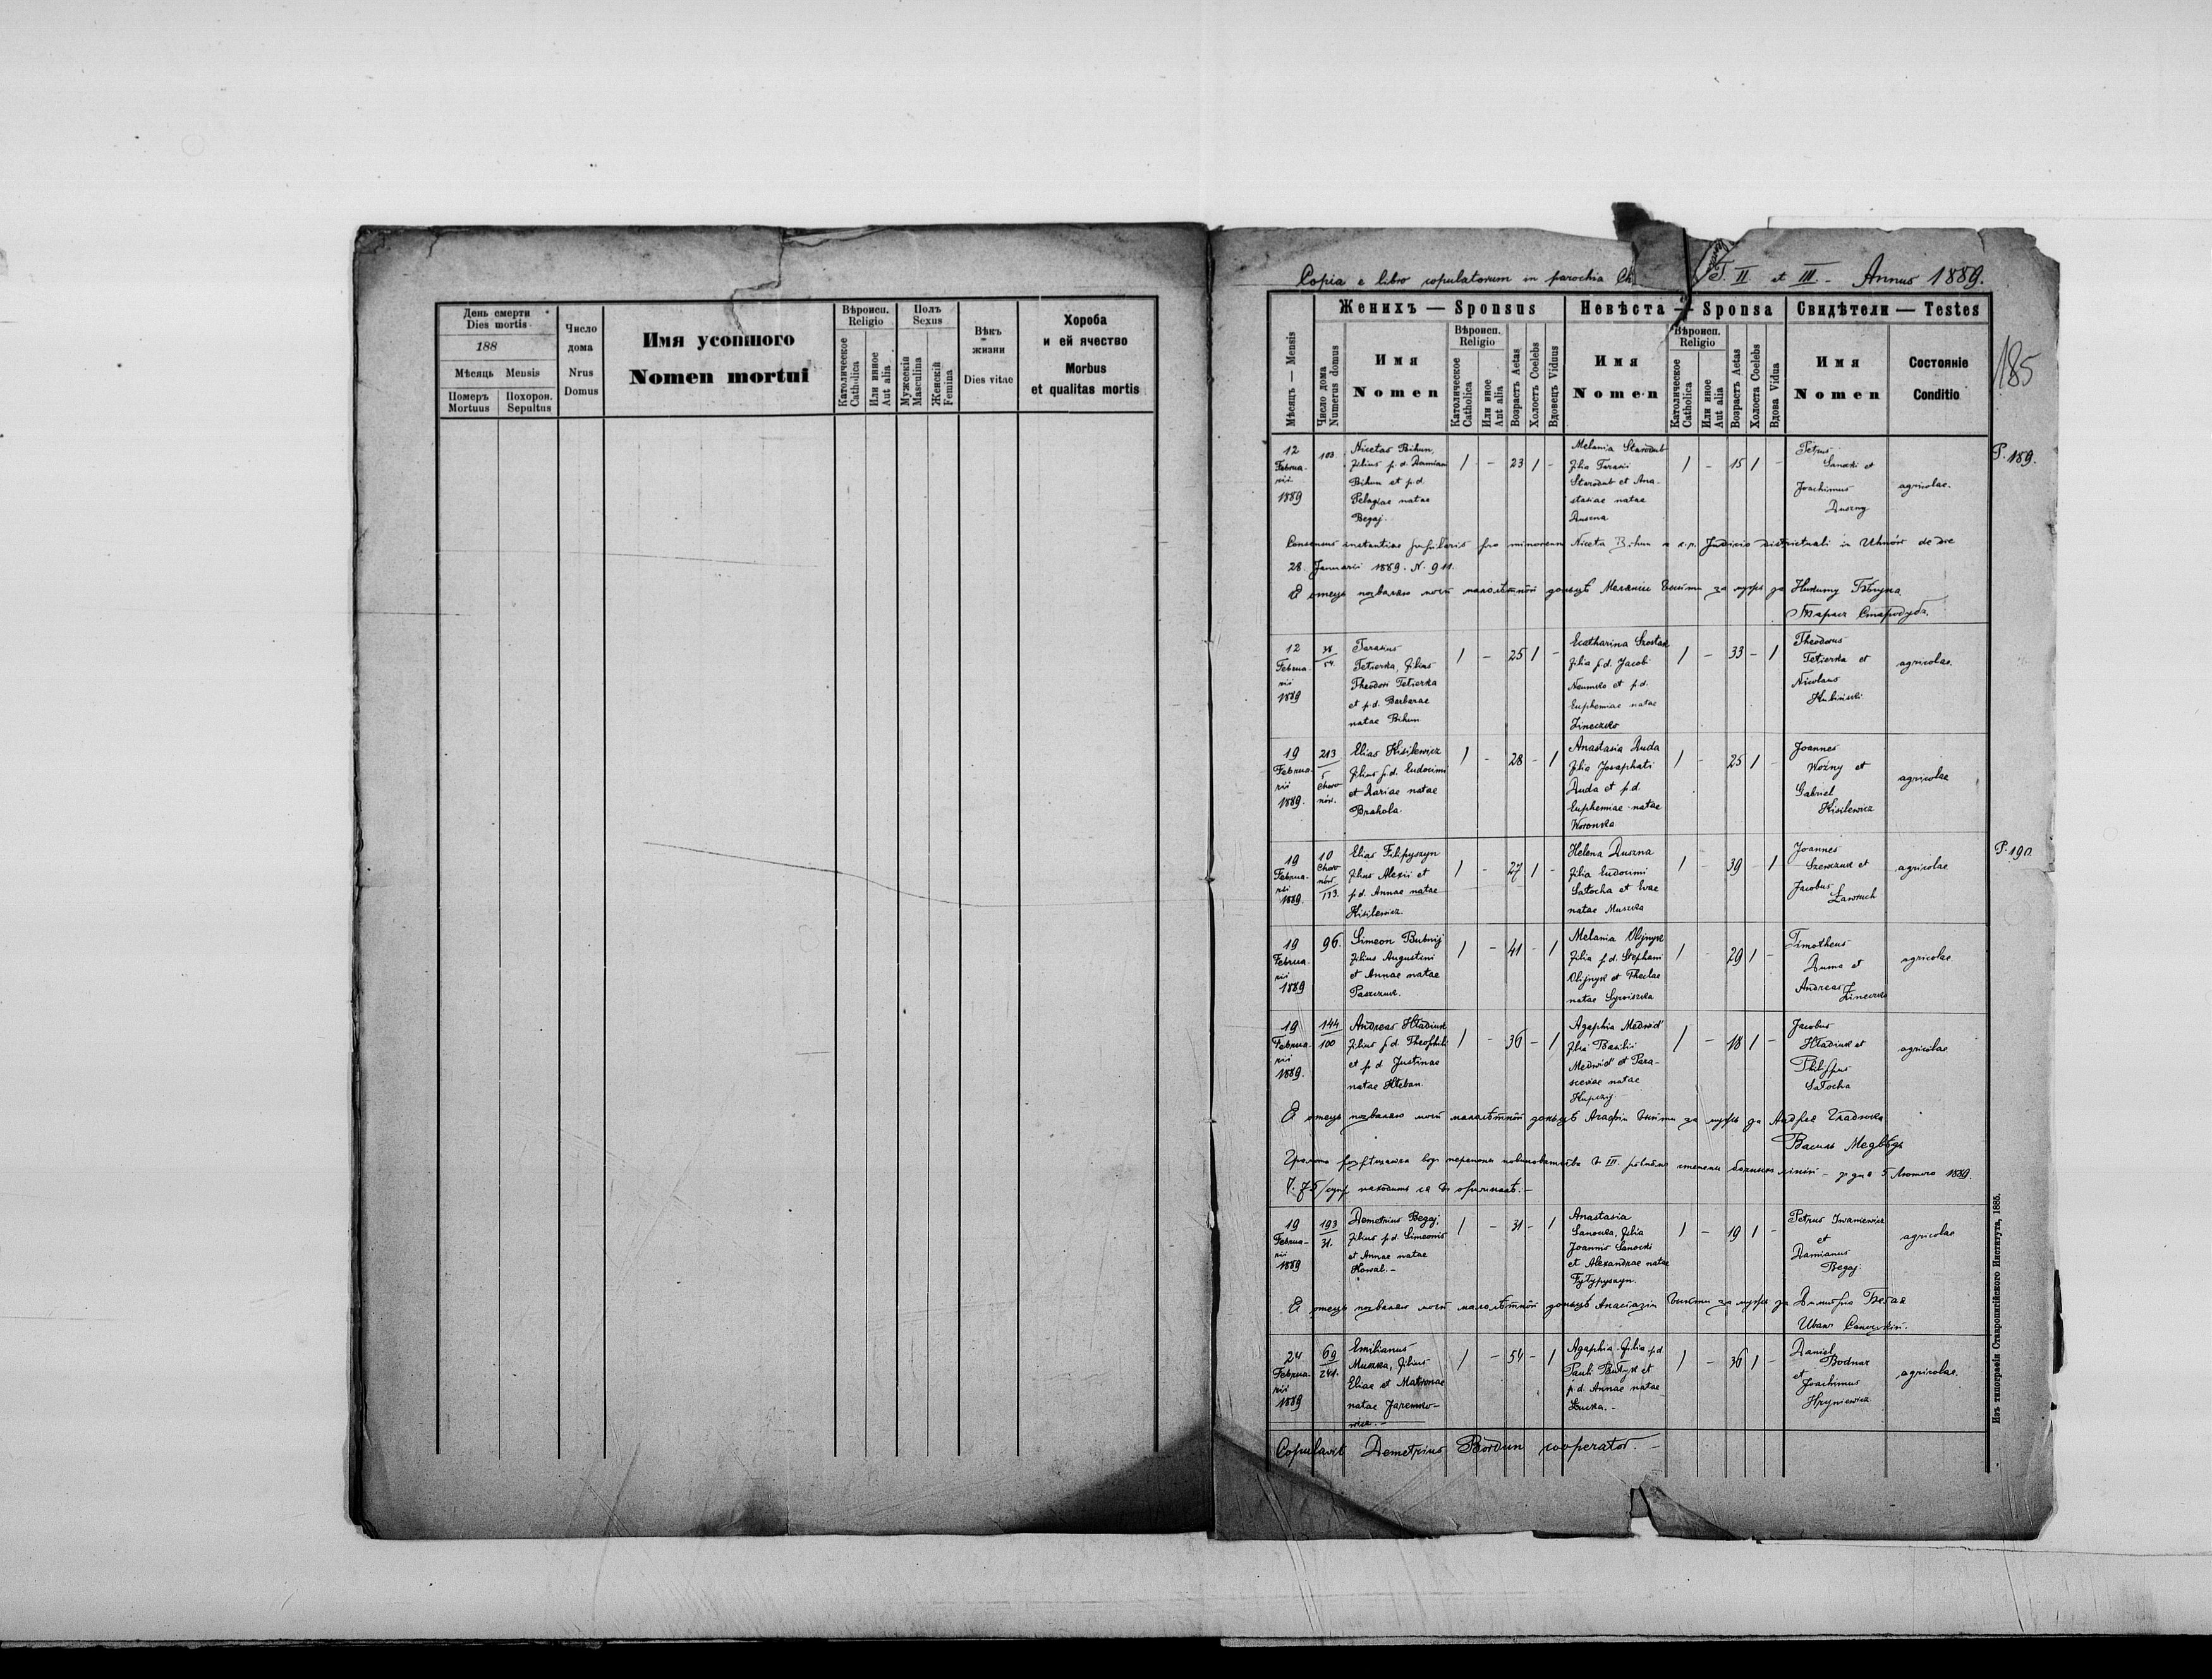 День смерти
Dies mortis
188
Мѣсяць Mensis
Померъ
Mortuus
Похорон.
Sepultus
Число
дома
Nrus
Domus
Имя усопшого
Nomen mortui
Вѣроисп.
Religio
Католическое
Catholica
Или инное
Aut alia
Полъ
Sexus
Мужескій
Masculina
Женскій
Femina
Вѣкъ
жизни
Dies vitae
Хороба
и ей ячество
Morbus
et qualitas mortis
Copia e libro copulatorum in parochia Ch
T. II et III. Annus 1889.
185
Мѣсяцъ — Mensis
Женихъ — Sponsus
Невѣста — Sponsa
Свидѣтели — Testes
Число дома
Numerus domus
Имя
Nomen
Вѣроисп.
Religio
Католическое
Catholica
Или иное
Aut alia
Возрастъ Aetas
Холостъ Coelebs
Вдовецъ Viduus
Имя
Nomen
Вѣроисп.
Religio
Католическое
Catholica
Или иное
Aut alia
Возрастъ Aetas
Холоста Coelebs
Вдова Vidua
Имя
Nomen
Состояніе
Conditio
12
Februa-
rii
1889
103.
Nicetas Bihun,
filius p. d. Damiani
Bihun et p. d.
Pelagiae natae
Begaj.
1 - 23 1 -
Melania Starodub
filia Tarasii
Starodub et Ana-
stasiae natae
Duszna
1 - 15 1 -
Petrus
Sanocki et
Joachimus
Duszny
agricolae.
P. 189.
Consensus instantiae pupilaris pro minorenni Niceta Bihun a Judicio districtuali in Uhnów de die
28. Januarii 1889. N. 911.
Я отець позваляю моѣй малолѣтной доньцѣ Меланіи выйти за мужъ за Никиту Бѣгуна
Тарасъ Стародубъ.
12
Februa-
rii
1889
38
54.
Tarasius
Tetierka, filius
Theodori Tetierka
et p. d. Barbarae
natae Bihun
1 - 25 1 -
Ecatharina Szostak
filia p. d. Jacobi
Naumko et p. d.
Euphemiae natae
Zineczko
1 - 33 - 1
Theodorus
Tetierka et
Nicolaus
Hubicki
agricolae.
19
Februa-
rii
1889.
213
5
Choro-
nów.
Elias Kisilewicz
filius p. d. Eudocimi
et Dariae natae
Brahola.
1 - 28 - 1
Anastasia Duda
filia Josaphati
Duda et p. d.
Euphemiae natae
Woronka
1 - 25 1 -
Joannes
Woźny et
Gabriel
Kisilewicz
agricolae
19
Februa-
rii
1889.
10
Choro-
nów
133.
Elias Filipyszyn
filius Alexii et
p. d. Annae natae
Kisilewicz.
1 - 27 1 -
Helena Duszna
filia Eudocimi
Satocha et Evae
natae Muszka
1 - 39 - 1
Joannes
Szewczuk et
Jacobus
Ławruch
agricolae
P. 190.
19
Februa-
rii
1889
96.
Simeon Bubnij
filius Augustini
et Annae natae
Paszczuk.
1 - 41 - 1
Melania Olijnyk
filia p. d. Stephani
Olijnyk et Theclae
natae Sywiszka
1 - 29 1 -
Timotheus
Duma et
Andreas
Zineczko
agricolae
19
Februa-
rii
1889.
144
100
Andreas Hładiuk
filius p. d. Theophili
et p. d. Justinae
natae Hleban.
1 - 36 - 1
Agaphia Medwid'
filia Basilii
Medwid' et Para-
sceviae natae
Hupczij
1 - 18 1 -
Jacobus
Hładiuk et
Philippus
Satocha
agricolae
Я отець позваляю моѣй малолѣтной доньцѣ Агафіи выйти за мужъ за Андрея Гладюка
Василь Медвѣдь
5 Лютого 1889.
19
Februa-
rii
1889
193
31.
Demetrius Begaj,
filius p. d. Simeonis
et Annae natae
Kowal. -
1 - 31 - 1
Anastasia
Sanocka, filia
Joannis Sanocki
et Alexandrae natae
Fyłypyszyn.
1 - 19 1 -
Petrus Iwaniewicz
et
Damianus
Begaj
agricolae
Я отець позваляю моѣй малолѣтной доньцѣ Анастазіи выйти за мужъ за Димитрія Бегая
Иванъ Саноцкій.
24
Februa-
rii
1889
69
241.
Emilianus
Muszka, filius
Eliae et Matronae
natae Jaremko-
wicz. -
1 - 54 - 1
Agaphia filia p. d.
Pauli Bułyk et
p. d. Annae natae
Łucka. -
1 - 36 1 -
Daniel
Bodnar
et
Joachimus
Hryniewicz
agricolae.
Copulavit Demetrius Bordun cooperator. -
Изъ типографіи Ставропигійского Института, 1885.